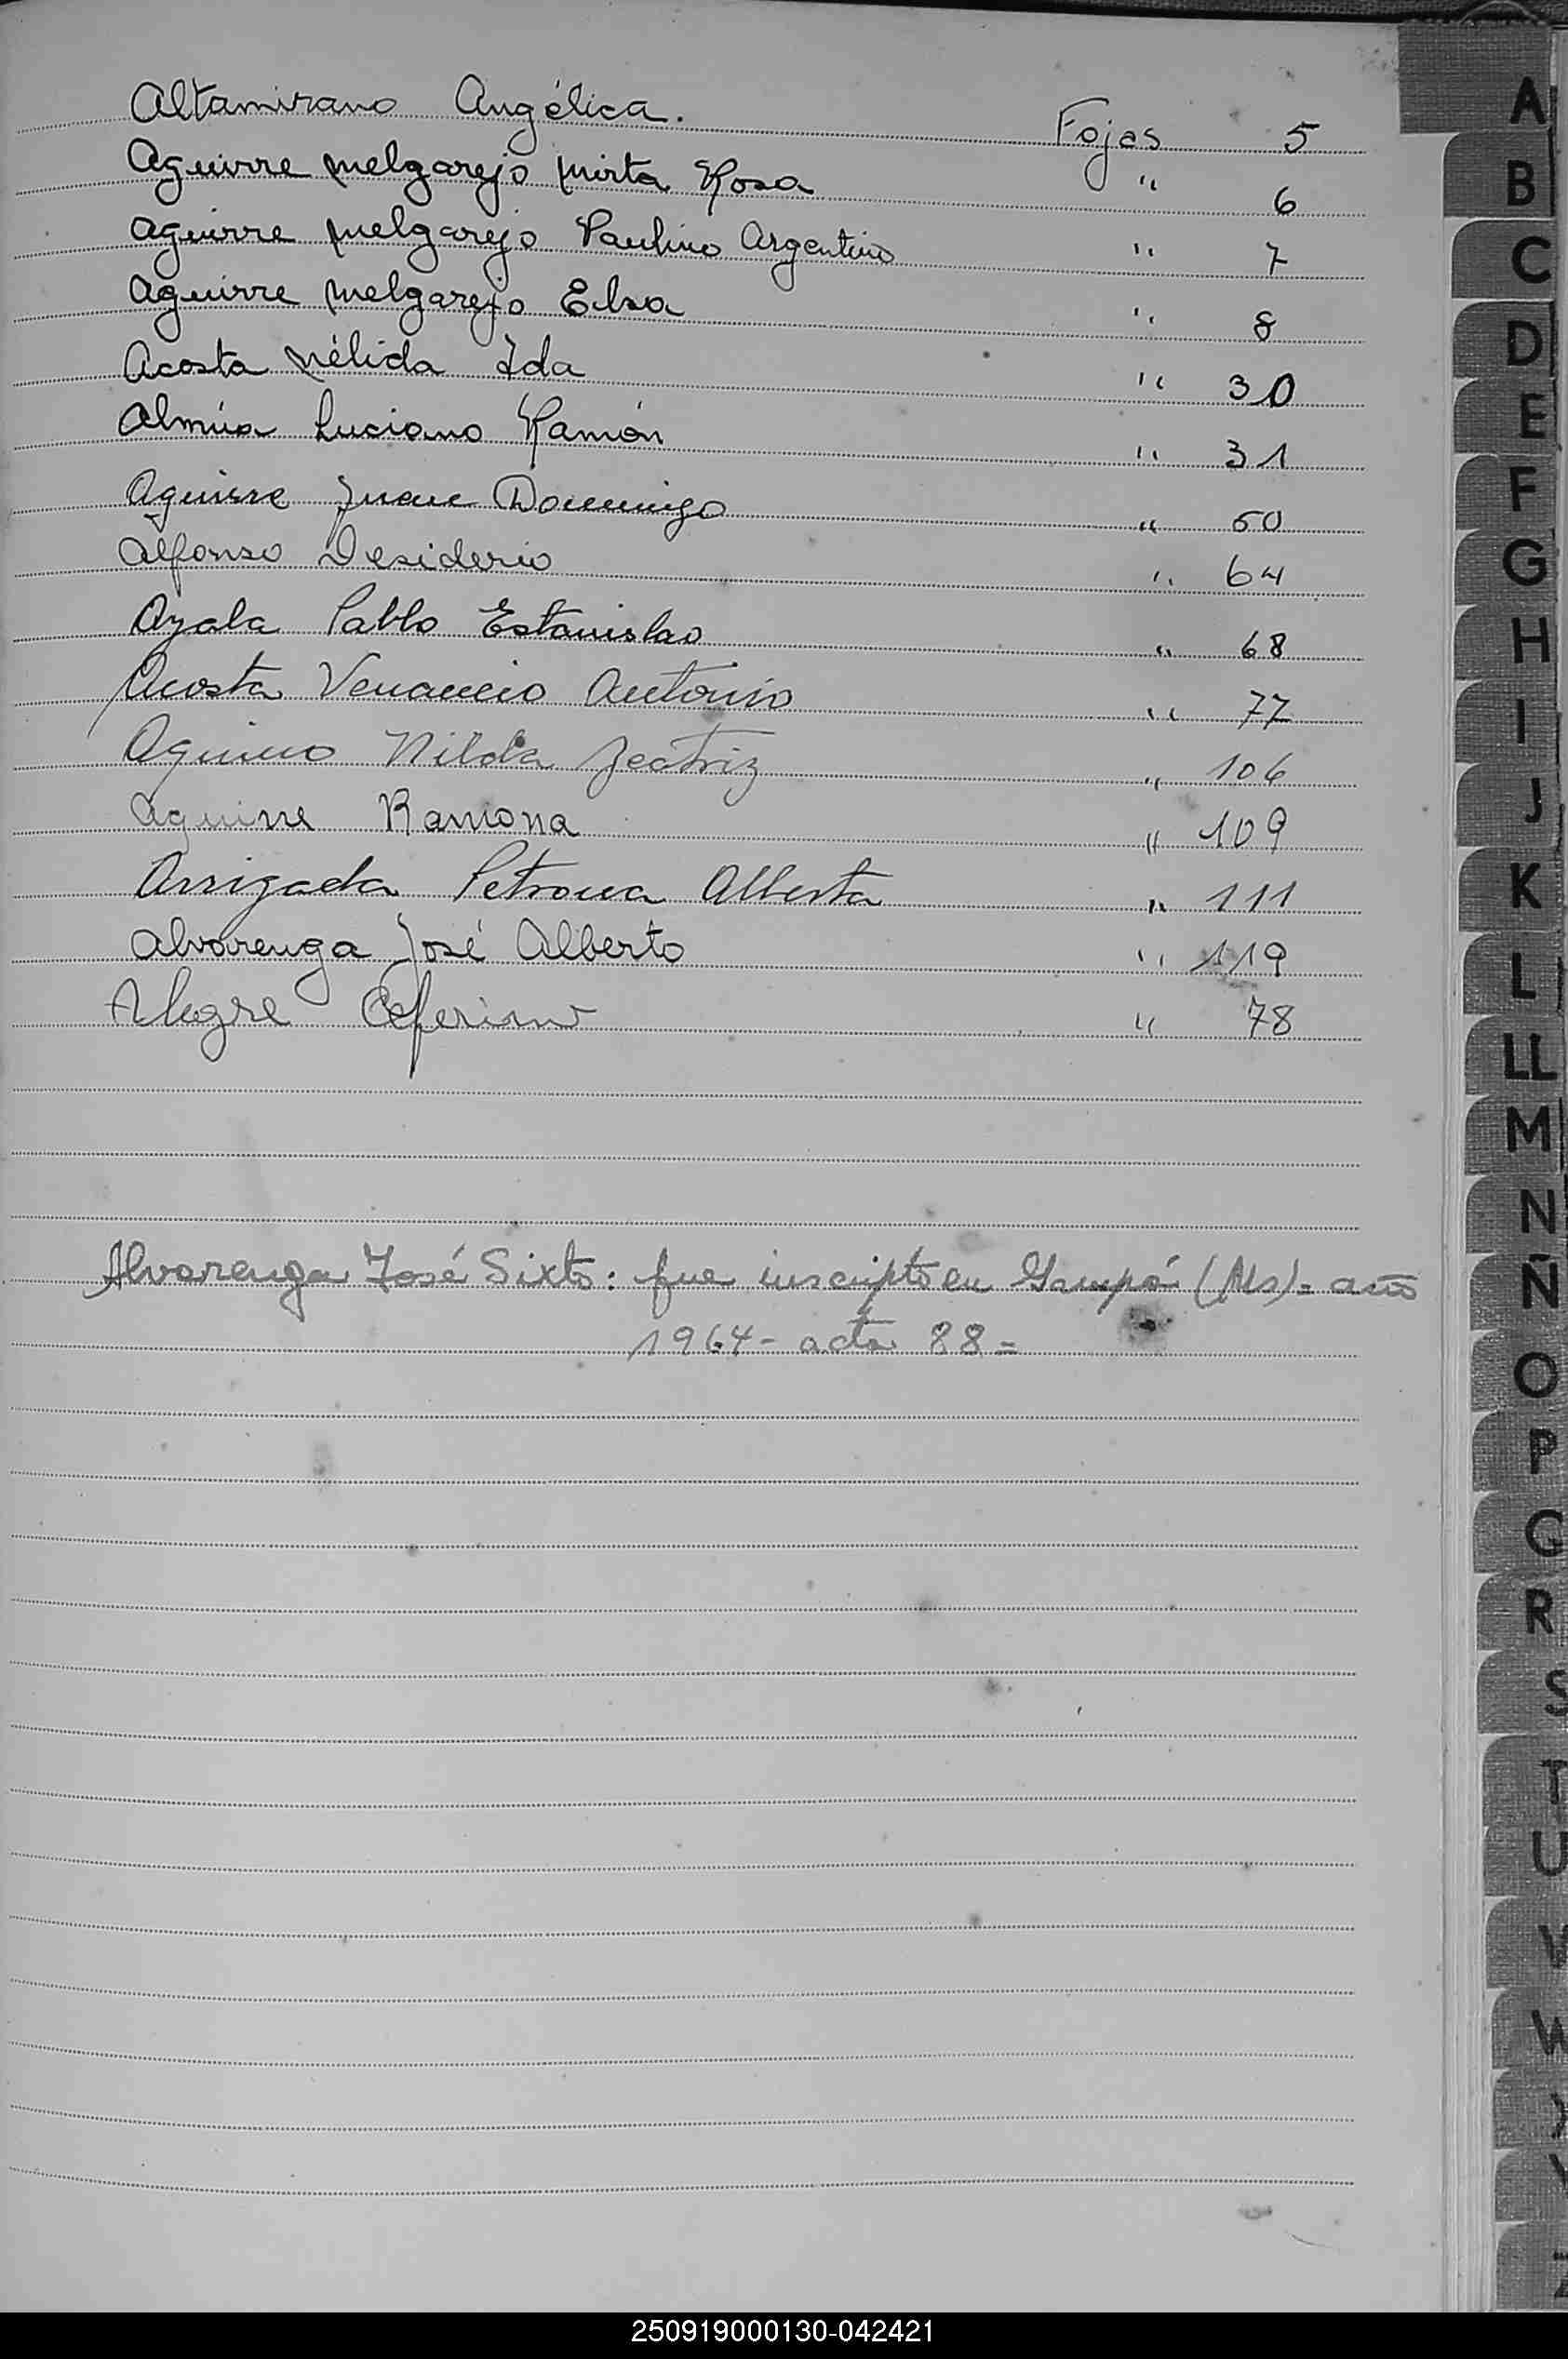 Altamirano Angélica. Fojas 5
Aguirre Melgarejo Mirta Rosa " 6
Aguirre Melgarejo Paulino Argentino " 7
Aguirre Melgarejo Elsa " 8
Acosta Nélida Ida " 30
Almúa Luciano Ramón " 31
Aguirre Juan Domingo " 50
Alfonso Desiderio " 64
Ayala Pablo Estanislao " 68
Acosta Venancio Antonio " 77
Aquino Nilda Beatriz " 106
Aguirre Ramona " 109
Arrigada Petrona Alberta " 111
Alvarenga José Alberto " 119
Alegre Ceferino " 78
Alvarenga José Sixto: fue inscripto en (Ms)= año
1964- acta 88=
A
B
C
D
E
F
G
H
I
J
K
L
LL
M
N
Ñ
O
P
Q
R
S
T
U
V
W
X
Y
Z
250919000130-042421